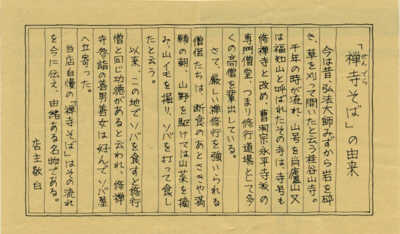 「禅寺そば」の由来
ぜんでら
今は昔、弘法大師みずから岩を砕
き、草を刈って開いたと云う桂谷山寺。
千年の時が流れ、山号を肖廬山又
は福祉山と呼ばれたその寺は、寺号も
修禅寺と改め、曹洞宗永平寺派の
専門僧堂、つまり修行道場として多
くの高僧を輩出している。
さて、厳しい禅修行を強いられる
僧侶たちは、断食のあとさきや満
願の朝、山野を駆けては山菜を摘
み、山イモを掘り、ソバを打って食し
たと云う。
以来、この地でソバを食すと修行
僧と同じ功徳があると云われ、修禅
寺参詣の善男善女は好んでソバ屋
へ立寄った。
当店自慢の「禅寺そば」はその流れ
を今に伝え、由緒ある名物である。
店主敬白